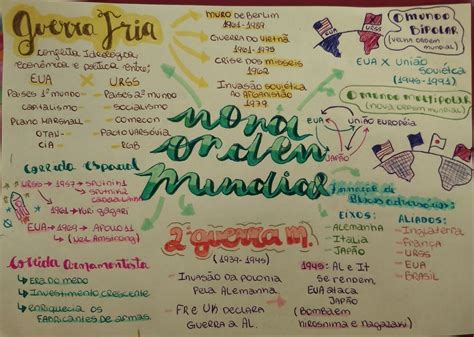 Guerra Fria
Conflito Ideológico,
Econômico e político entre;
EUA X URSS
Países 1º mundo - Países 2º mundo
Capitalismo - Socialismo
Plano Marshall - Comecon
OTAN - Pacto Varsóvia
CIA - KGB
muro de Berlim
1961-1989
Guerra do Vietnã
1961-1975
Crise dos mísseis
1962
Invasão soviética
ao Afganistão
1979
EUA X URSS
O mundo
Bipolar
(velha ordem
mundial)
EUA X União
Soviética
(1945-1991)
O mundo multipolar
(nova ordem mundial)
EUA
União Européia
Japão
nova
ordem
mundial
Corrida Espacial
URSS → 1957 → Sputinik 1
Sputinik 2
1961 → Yuri Gagari
EUA → 1969 → Apolo 11
Corrida Armamentista
Era do medo
Investimento crescente
enriquecia os
fabricantes de armas.
2ª guerra m.
(1939-1945)
- Invasão da Polonia
pela Alemanha
- FR e UK declara
guerra a AL.
1945: AL e It
se rendem
EUA ataca
JAPÃO
(Bombaem
Hiroshima e Nagazaki)
Formação de
Blocos adversários:
EIXOS:
- Alemanha
- Italia
- JAPÃO
ALIADOS:
- Inglaterra
- França
- URSS
- EUA
- BRASIL